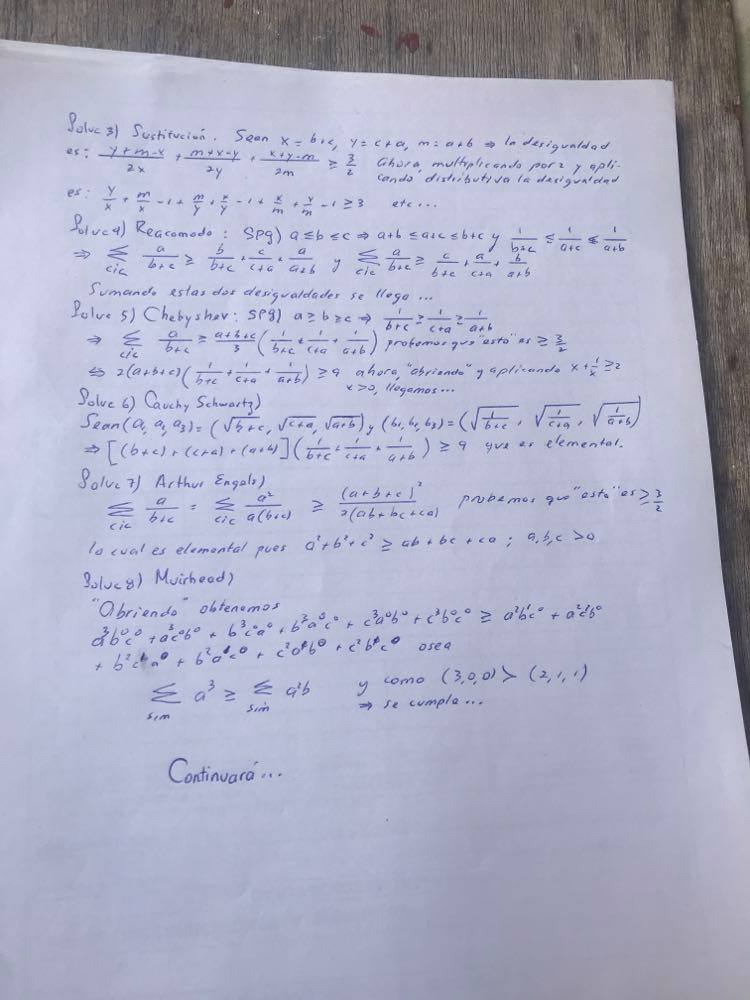 Solve 3) Sustitución. Sean x = b+c, y = c+a, m = a+b ⇒ la desigualdad
es: (y+m-x)/2x + (m+x-y)/2y + (x+y-m)/2m ≥ 3/2 ahora, multiplicando por 2 y apli-
cando distributiva la desigualdad
es: y/x + m/x - 1 + m/y + x/y - 1 + x/m + y/m - 1 ≥ 3 etc...
Solve 4) Reacomodo: SPG) a ≤ b ≤ c ⇒ a+b ≤ a+c ≤ b+c y 1/(b+c) ≤ 1/(a+c) ≤ 1/(a+b)
⇒ Σcic a/(b+c) ≥ b/(b+c) + c/(c+a) + a/(a+b) y Σcic a/(b+c) ≥ c/(b+c) + a/(c+a) + b/(a+b)
Sumando estas dos desigualdades se llega...
Solve 5) Chebyshev: SPG) a ≥ b ≥ c ⇒ 1/(b+c) ≥ 1/(c+a) ≥ 1/(a+b)
⇒ Σcic a/(b+c) ≥ (a+b+c)/3 (1/(b+c) + 1/(c+a) + 1/(a+b)) probemos que "esto" es ≥ 3/2
⇔ 2(a+b+c)(1/(b+c) + 1/(c+a) + 1/(a+b)) ≥ 9 ahora, "abriendo" y aplicando x + 1/x ≥ 2
x>0, llegamos...
Solve 6) Cauchy Schwartz)
Sean (a, a, a₃) = (√(b+c), √(c+a), √(a+b)) y (b₁, b₂, b₃) = (√(1/(b+c)), √(1/(c+a)), √(1/(a+b)))
⇒ [(b+c) + (c+a) + (a+b)](1/(b+c) + 1/(c+a) + 1/(a+b)) ≥ 9 que es elemental.
Solve 7) Arthur Engels)
Σcic a/(b+c) = Σcic a²/a(b+c) ≥ (a+b+c)²/2(ab+bc+ca) probemos que "esto" es ≥ 3/2
lo cual es elemental pues a²+b²+c² ≥ ab+bc+ca; a,b,c >0
Solve 8) Muirhead)
"Abriendo" obtenemos
a³b⁰c⁰ + a³c⁰b⁰ + b³c⁰a⁰ + b³a⁰c⁰ + c³a⁰b⁰ + c³b⁰c⁰ ≥ a²b¹c⁰ + a²c¹b⁰
+ b²c¹a⁰ + b²a¹c⁰ + c²a¹b⁰ + c²b¹c⁰ osea
Σsim a³ ≥ Σsim a²b y como (3,0,0) > (2,1,1)
⇒ se cumple...
Continuará...